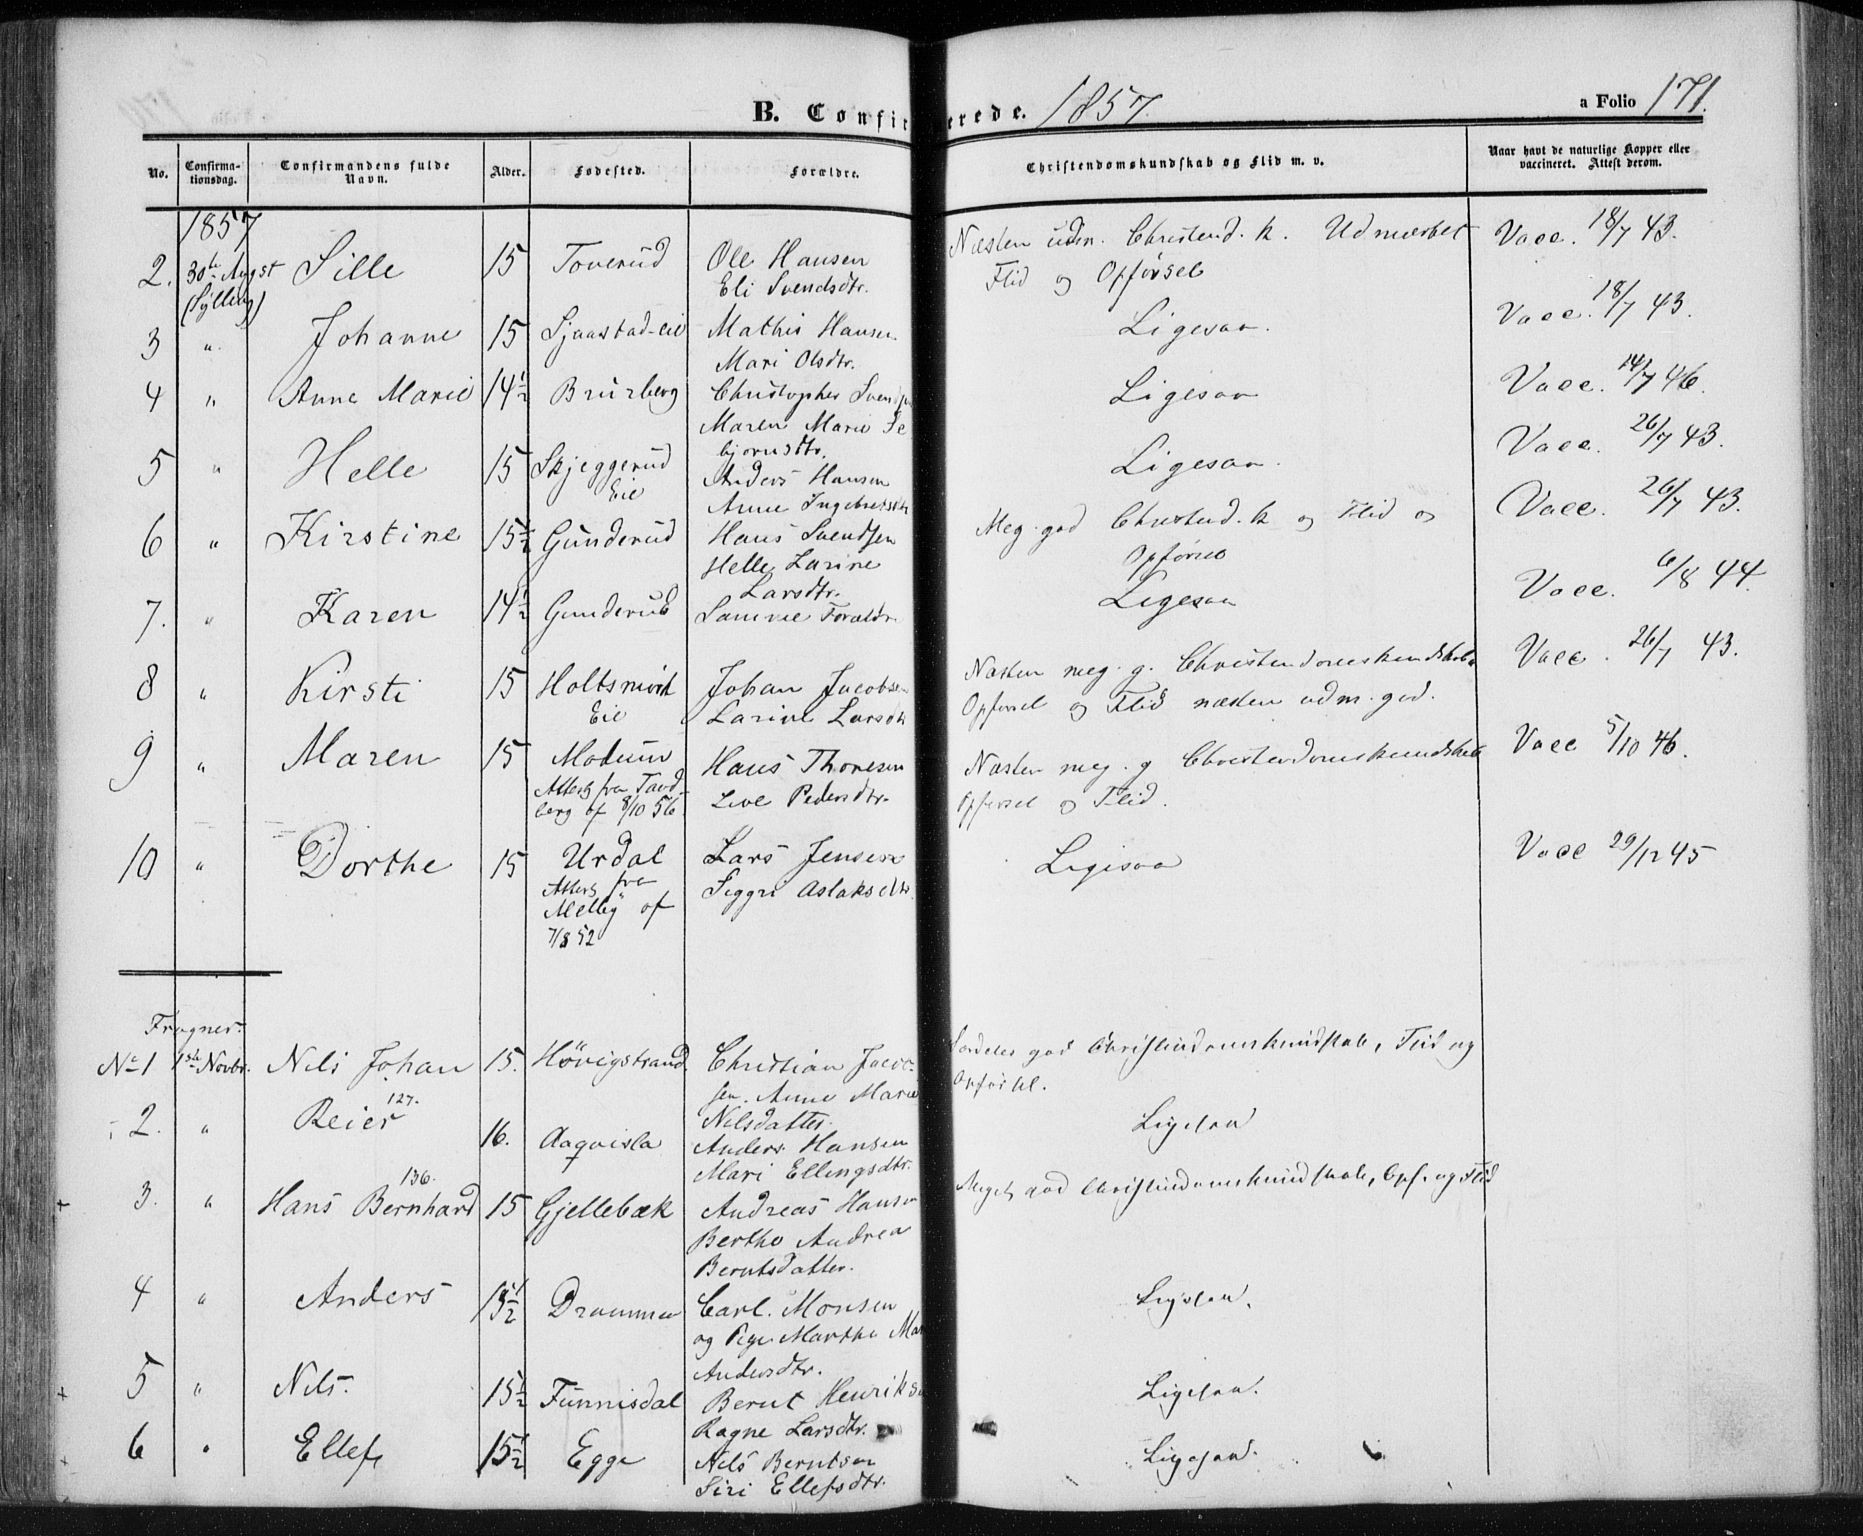 B. Confir erede. 1857 a Folio 171.
No. Confirmationsdag. Confirmandens fulde Navn. Alder. Fødested. Forældre. Christendomskundskab og Flid m. v. Naar havt de naturlige Kopper eller vaccineret. Attest derom.
1857
2. 30te Augst (Sylling) Sille 15 Toverud Ole Hansen Næsten udm. Christend. k. Udmærket Vacc. 18/7 43.
Eli Svendsdtr. Flid og Opførsel
3 " Johanne 15 Sjaastad-eie Mathis Hansen Ligesaa. Vacc. 18/7 43.
Mari Olsdtr.
4 " Anne Marie 14½ Brurberg Christopher Svendsen Ligesaa Vacc. 14/7 46.
Maren Marie Te
bjørnsdtr.
5 " Helle 15 Skjeggerud Eie Anders Hansen Ligesaa. Vacc. 26/7 43.
Anne Ingebretsdtr
6 " Kirstine 15½ Gunderud Hans Svendsen Meg. god Christend. k og Flid og Vacc. 26/7 43.
Helle Larine Opførsel
Larsdtr.
7. " Karen 14½ Gunderud Samme Forældr. Ligesaa Vacc. 6/8 44.
8 " Kirsti 15 Holtsmark Eie Johan Jacobsen Næsten meg. g. Christendomskundskab Vacc. 26/7 43.
Larine Larsdtr Opførsel og Flid næsten udm. god.
9 " Maren 15 Modum Hans Thoresen Næsten meg. g Christendomskundskab Vacc 5/10 46.
Attest fra Tand
berg af 8/10 56. Live Pedersdtr. Opførsel og Flid.
10 " Dorthe 15 Urdal Lars Jensen Ligesaa Vacc 29/12 45
Attest fra Siggri Aslaksdtr.
Melby af
7/8 52
Frogner.
No 1 1ste Novbr. Nils Johan 15. Høvigstrand Christian Jacob- Særdeles god Christendomskundskab, Flid og
sen. Anne Marie Opførsel.
Nilsdatter.
2. " Reier 127. 16. Aaqvisla Anders Hansen Ligesaa
Mari Ellingsdtr.
3. " Hans Bernhard 136. 15 Gjellebæk Andreas Hansen Meget god Christendomskundskab, Opf. og Flid
Berthe Andrea
Berntsdatter.
4 " Anders 15½ Drammen Carl Monsen Ligesaa.
og Pige Marthe Mar
Andersdtr.
5 " Nils. 15½ Tunnisdal Bernt Henriksen Ligesaa.
Ragne Larsdtr.
6 " Ellef 15½ Egge Nils Berntsen Ligesaa.
Siri Ellefsdtr.